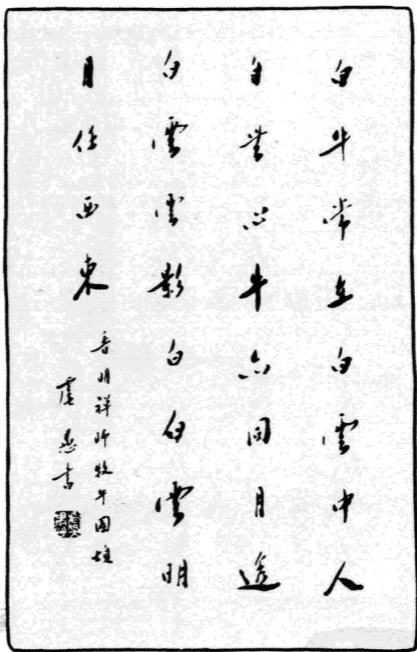 白牛常在白雲中人
自無心牛亦同月透
白雲雲影白白雲明
月任西東
普明禪師牧牛圖頌
虞愚書